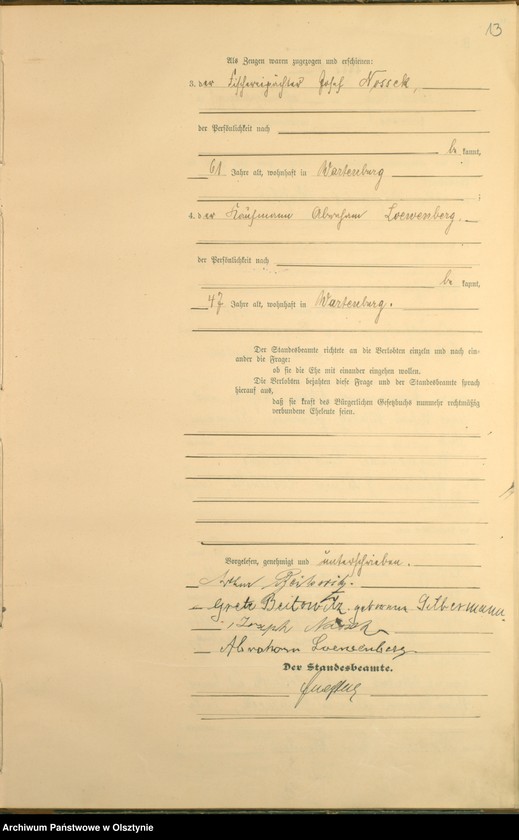 13
Als Zeugen waren zugezogen und erschienen:
3. der Fischereipächter Josef Nossek,
der Persönlichkeit nach
be kannt,
61 Jahre alt, wohnhaft in Wartenburg
4. der Kaufmann Abraham Loewenberg.
der Persönlichkeit nach
be kannt,
47 Jahre alt, wohnhaft in Wartenburg.
Der Standesbeamte richtete an die Verlobten einzeln und nach ein-
ander die Frage:
ob sie die Ehe mit einander eingehen wollen.
Die Verlobten bejahten diese Frage und der Standesbeamte sprach
hierauf aus,
daß sie kraft des Bürgerlichen Gesetzbuchs nunmehr rechtmäßig
verbundene Eheleute seien.
Vorgelesen, genehmigt und unterschrieben.
Beitowitz.
Grete Beitowitz geborene Silbermann.
Joseph Nossek
Abraham Loewenberg
Der Standesbeamte.
Archiwum Państwowe w Olsztynie